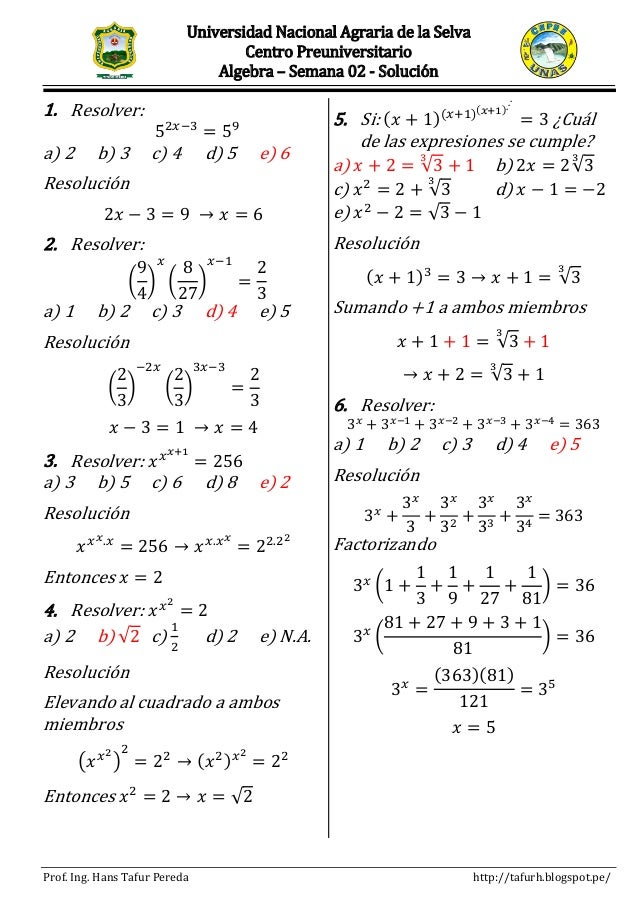 Universidad Nacional Agraria de la Selva
Centro Preuniversitario
Algebra – Semana 02 - Solución
1. Resolver:
5^{2x−3} = 5^9
a) 2 b) 3 c) 4 d) 5 e) 6
Resolución
2x − 3 = 9 → x = 6
2. Resolver:
(9/4)^x (8/27)^{x−1} = 2/3
a) 1 b) 2 c) 3 d) 4 e) 5
Resolución
(2/3)^{−2x} (2/3)^{3x−3} = 2/3
x − 3 = 1 → x = 4
3. Resolver: x^{x^{x+1}} = 256
a) 3 b) 5 c) 6 d) 8 e) 2
Resolución
x^{x^x.x} = 256 → x^{x.x^x} = 2^{2.2^2}
Entonces x = 2
4. Resolver: x^{x^2} = 2
a) 2 b) √2 c) 1/2 d) 2 e) N.A.
Resolución
Elevando al cuadrado a ambos
miembros
(x^{x^2})^2 = 2^2 → (x^2)^{x^2} = 2^2
Entonces x^2 = 2 → x = √2
5. Si: (x + 1)^{(x+1)^{(x+1)^⋰}} = 3 ¿Cuál
de las expresiones se cumple?
a) x + 2 = ∛3 + 1 b) 2x = 2∛3
c) x^2 = 2 + ∛3 d) x − 1 = −2
e) x^2 − 2 = √3 − 1
Resolución
(x + 1)^3 = 3 → x + 1 = ∛3
Sumando +1 a ambos miembros
x + 1 + 1 = ∛3 + 1
→ x + 2 = ∛3 + 1
6. Resolver:
3^x + 3^{x−1} + 3^{x−2} + 3^{x−3} + 3^{x−4} = 363
a) 1 b) 2 c) 3 d) 4 e) 5
Resolución
3^x + 3^x/3 + 3^x/3^2 + 3^x/3^3 + 3^x/3^4 = 363
Factorizando
3^x (1 + 1/3 + 1/9 + 1/27 + 1/81) = 36
3^x ((81 + 27 + 9 + 3 + 1)/81) = 36
3^x = (363)(81)/121 = 3^5
x = 5
Prof. Ing. Hans Tafur Pereda http://tafurh.blogspot.pe/